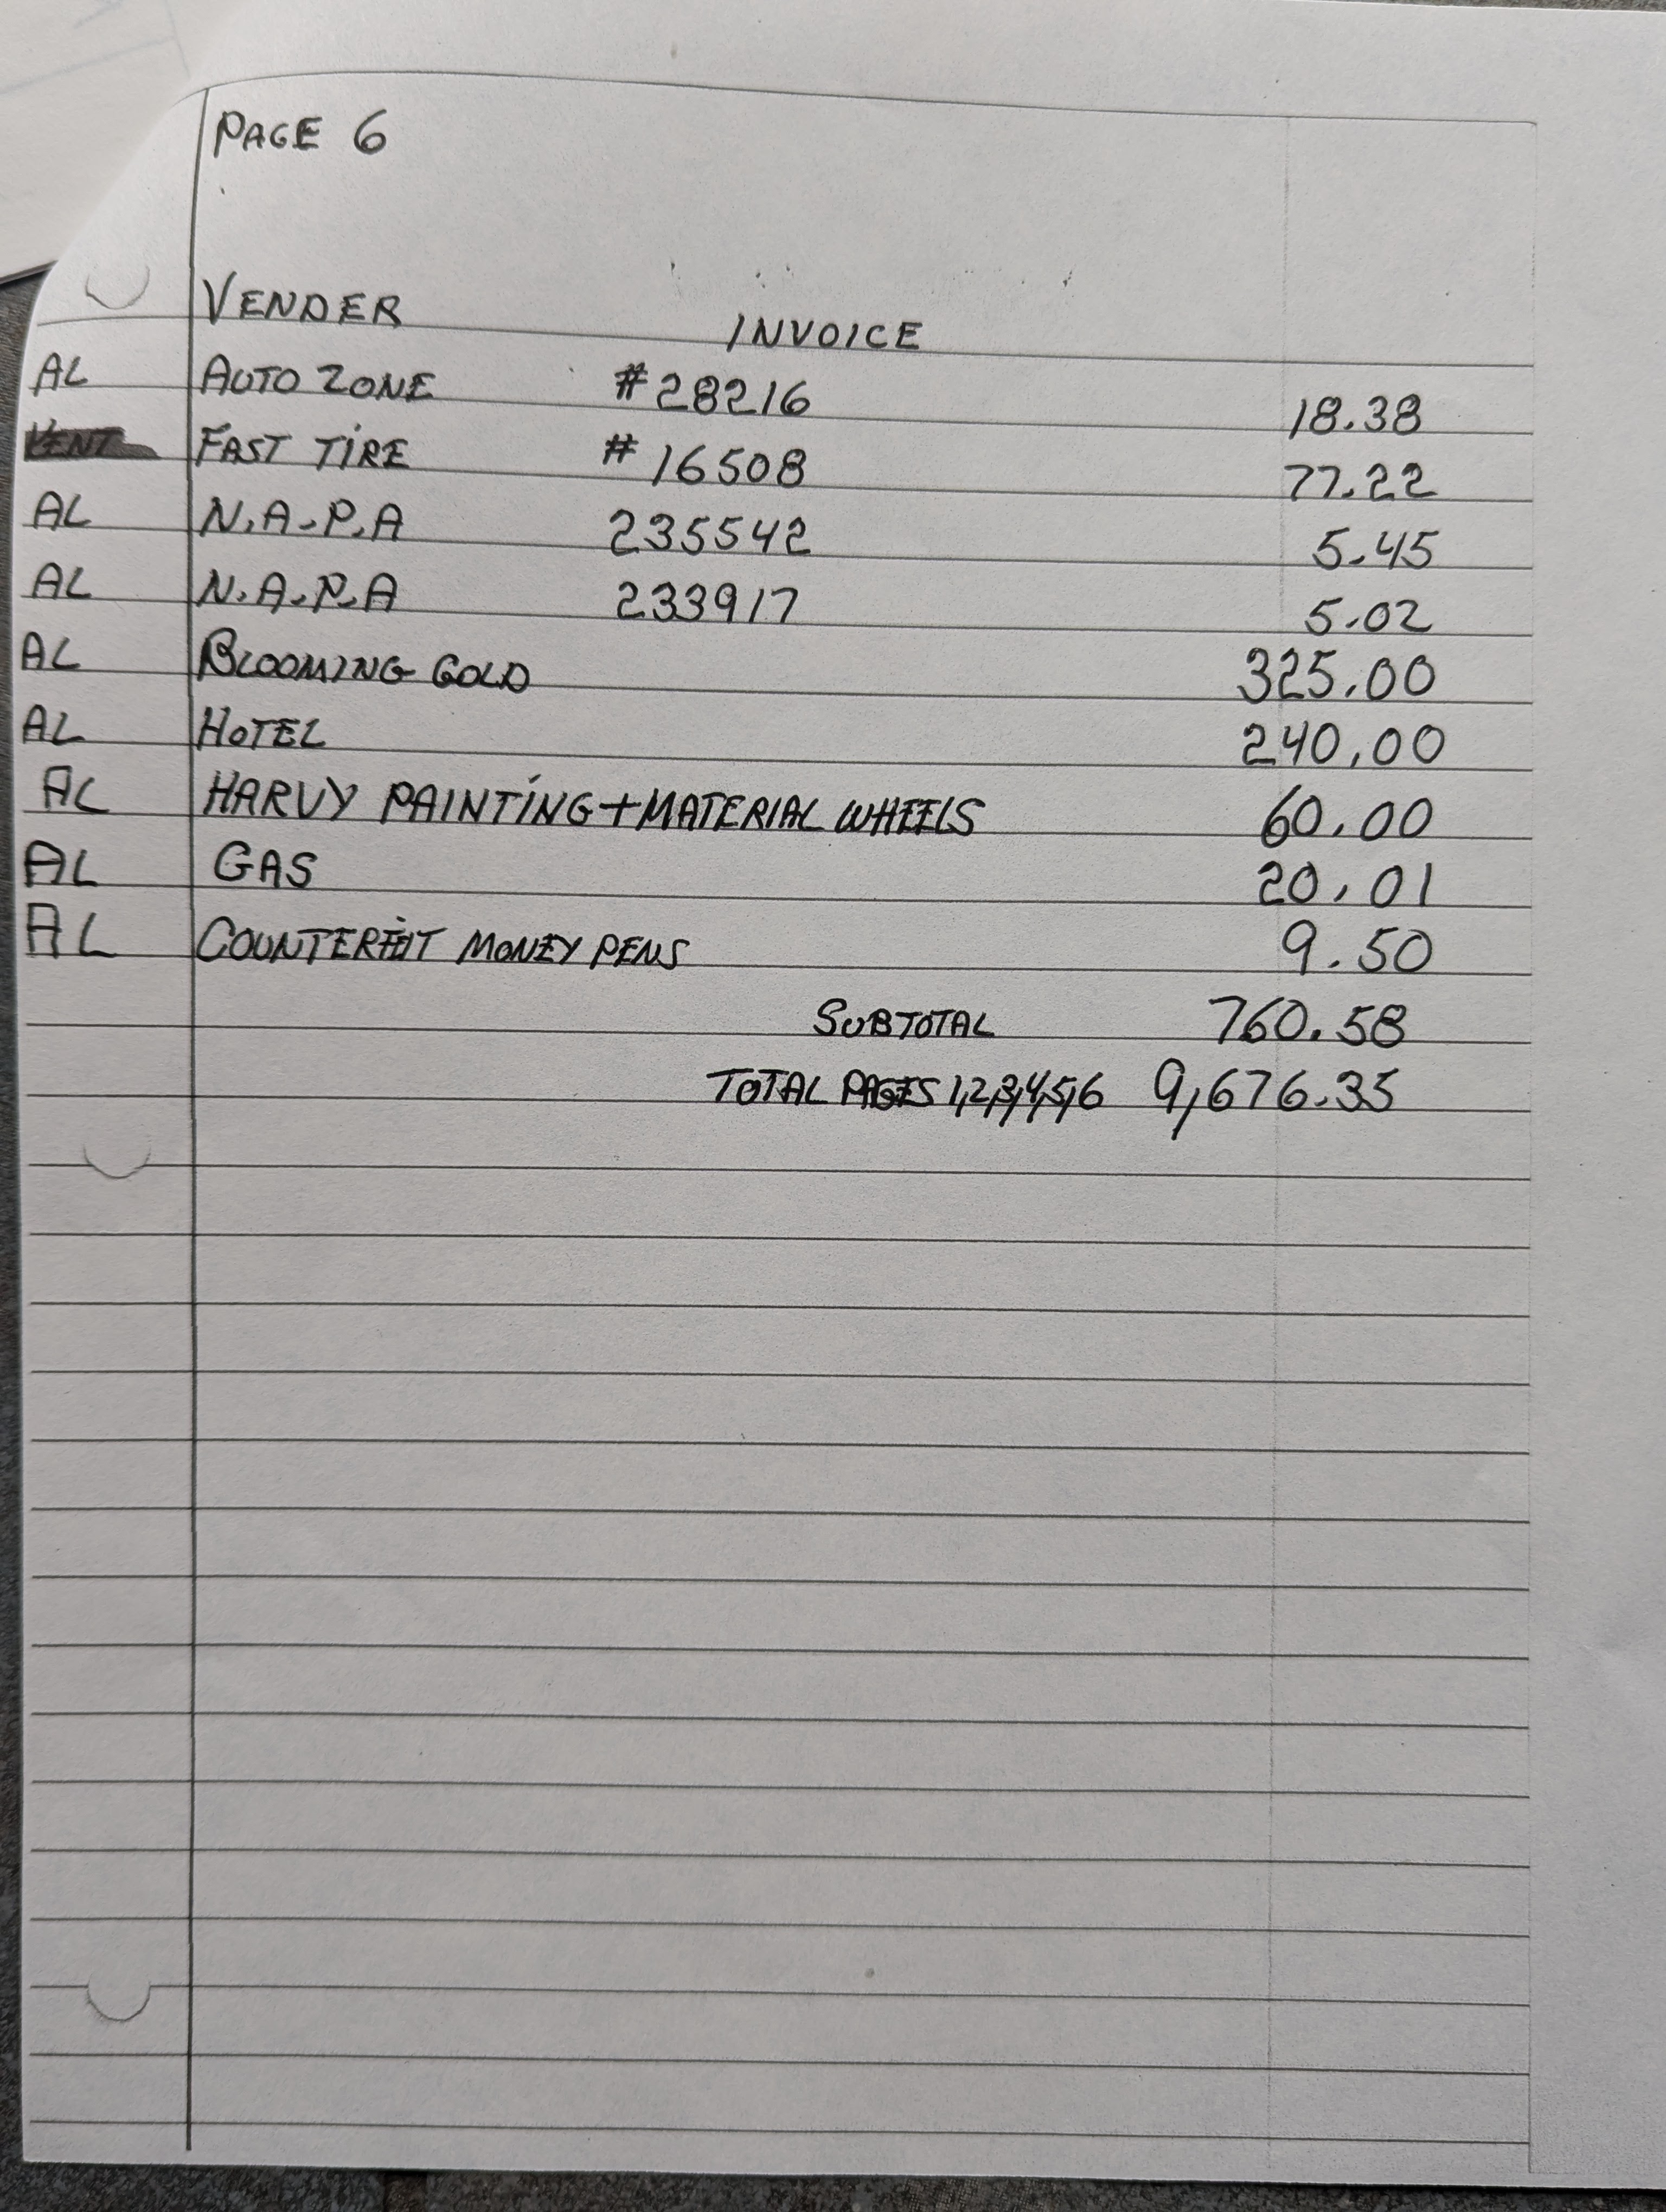 PAGE 6
VENDER INVOICE
AL AUTO ZONE #28216 18.38
VENT FAST TIRE #16508 77.22
AL N.A.P.A 235542 5.45
AL N.A.P.A 233917 5.02
AL BLOOMING GOLD 325.00
AL HOTEL 240.00
AL HARVY PAINTING+MATERIAL WHEELS 60.00
AL GAS 20.01
AL COUNTERFEIT MONEY PENS 9.50
SUBTOTAL 760.58
TOTAL PAGES 1,2,3,4,5,6 9,676.35